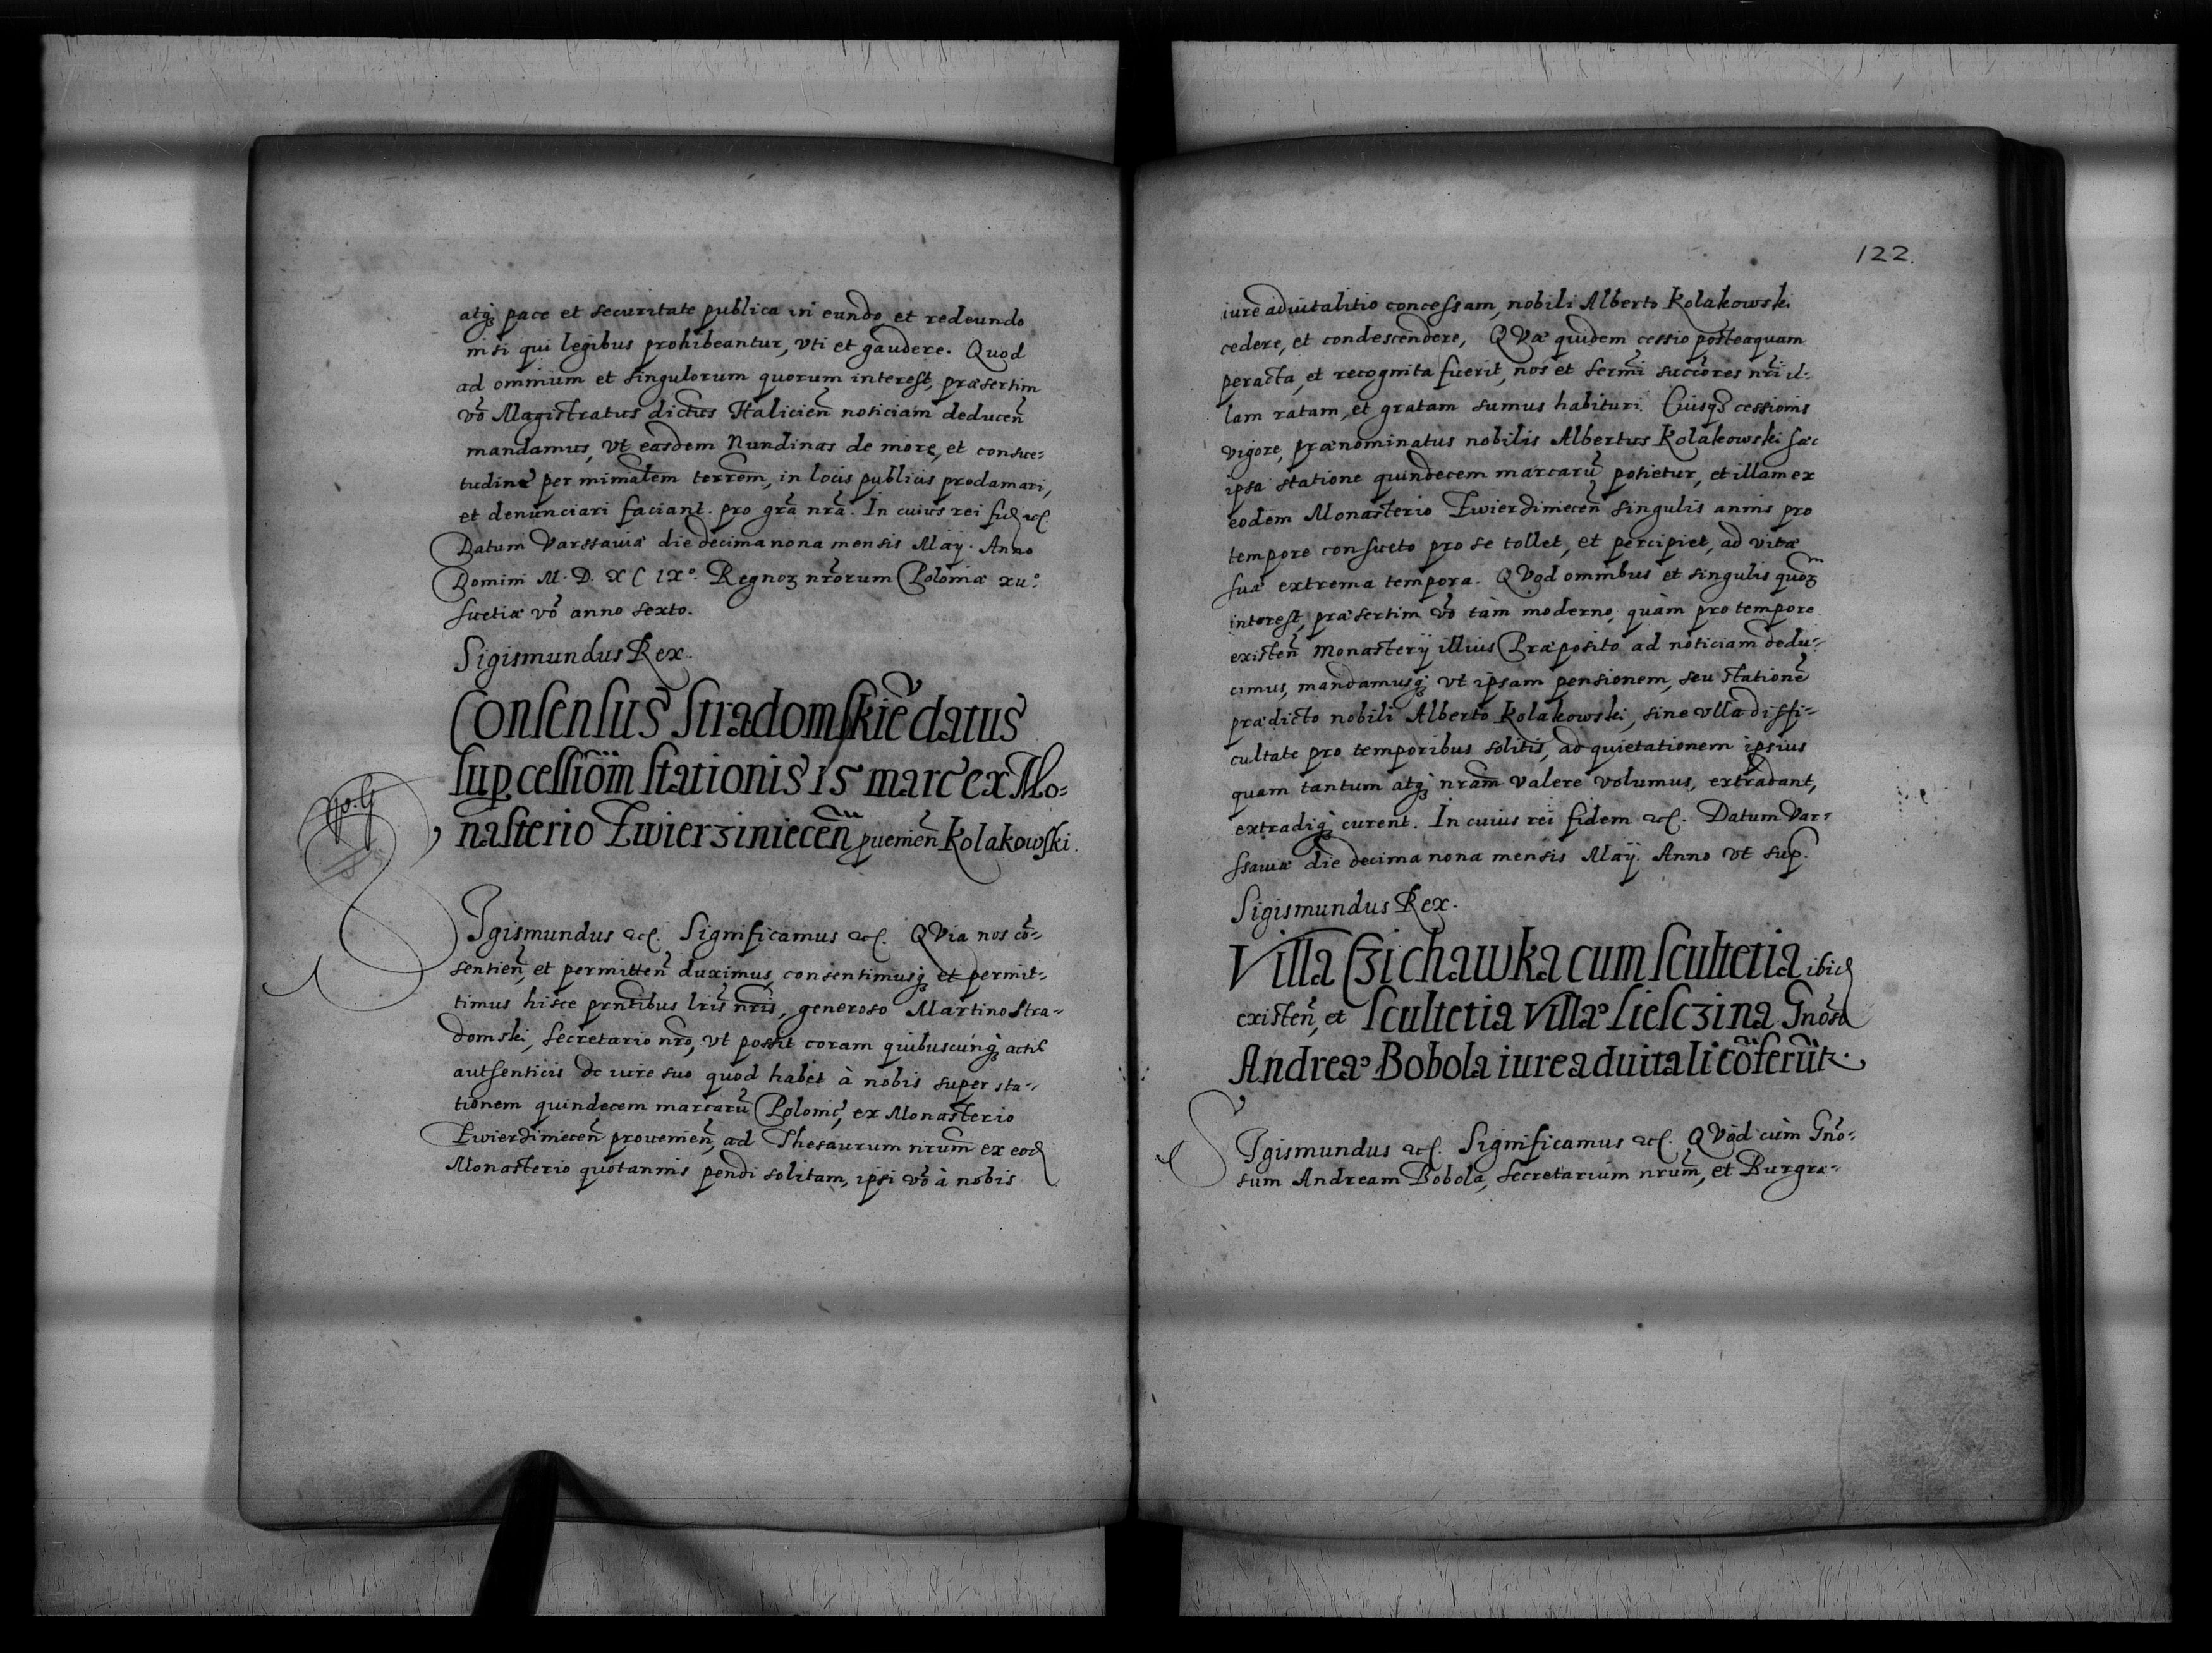 atq₃ pace et securitate publica in eundo et redeundo
nisi qui legibus prohibeantur, vti et gaudere. Quod
ad omnium et singulorum quorum interest, præsertim
vō Magistratus dictus Haliciēn noticiam deducēn
mandamus, vt easdem Nundinas de more, et consue-
tudine per minālem terrēm, in locis publicis proclamari,
et denunciari faciant. pro grā nrā. In cuius rei fid etc.
Datum Varssaviæ die decima nona mensis Maÿ. Anno
Domini M. D. XC IX°. Regnoꝝ nr̄orum Poloniæ xii°
suetiæ vō anno sexto.
Sigismundus Rex.
Consensus Stradomskiē datus
sup cessiōm stationis 15 marc ex Mo-
nasterio Zwierziniecēn ꝓueniēn Kolakowski.
Sigismundus etc. Significamus etc. QVia nos cō-
sentiēn, et permittēn duximus, consentimusq₃ et permit-
timus hisce prn̄tibus lr̄is nr̄is, generoso Martino Stra-
domski, secretario nrō, vt possit coram quibuscunq₃ actis
autsenticis de iure suo quod habet à nobis super sta-
tionem quindecem marcarū Polonic, ex Monasterio
Zwierziniecēn proueniēn, ad Thesaurum nrum̄ ex eod
Monasterio quotannis pendi solitam, ipsi vō à nobis
122.
iure aduitalitio concessam, nobili Alberto Kolakowski
cedere, et condescendere, QVæ quidem cessio posteaquam
peracta, et recognita fuerit, nos et sermī succōres nrī il-
lam ratam, et gratam sumus habituri. Cuiusq₃ cessionis
vigore, prænominatus nobilis Albertus Kolakowski hac
ipsa statione quindecem marcarū potietur, et illam ex
eodem Monasterio Zwierziniecēn singulis annis pro
tempore consueto pro se tollet, et percipiet, ad vitæ
suæ extrema tempora. QVod omnibus et singulis quoꝝ
interest, præsertim vō tàm moderno, quàm pro tempore
existēn Monasterÿ illius Præposito ad noticiam dedu-
cimus, mandamusq₃ vt ipsam pensionem, seu stationē
prædicto nobili Alberto Kolakowski, sine vlla diffi-
cultate pro temporibus solitis, ad quietationem ipsius
quam tantum atq₃ nram̄ valere volumus, extradant,
extradiq₃ curent. In cuius rei fidem etc. Datum Var-
ssauiæ die decima nona mensis Maÿ. Anno vt sup.
Sigismundus Rex.
Villa Czichawka cum scultetia ibid
existēn, et scultetia villæ Sielczina Gnōso
Andreæ Bobola iure aduitali cōferūt.
Sigismundus etc. Significamus etc. QVod cùm Gnō-
sum Andream Bobola, secretarium nrum̄, et Burgra-